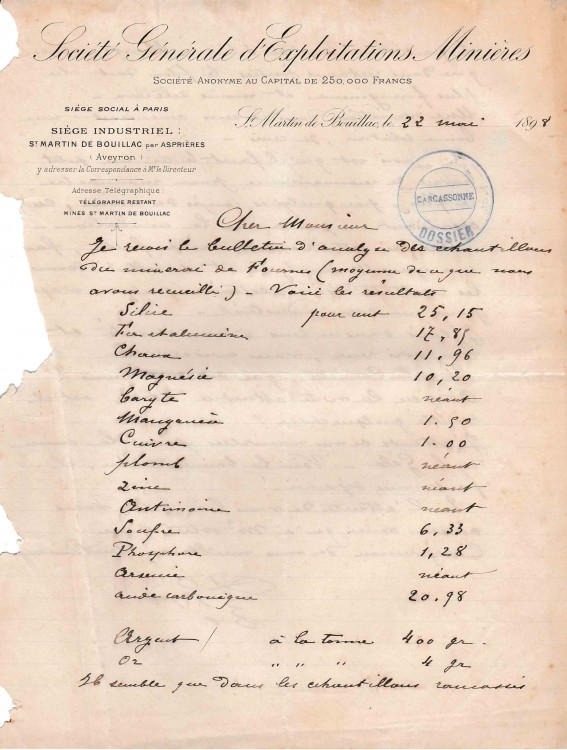 Société Générale d'Exploitations Minières
SOCIÉTÉ ANONYME AU CAPITAL DE 250,000 FRANCS
SIÉGE SOCIAL À PARIS
SIÈGE INDUSTRIEL :
ST MARTIN DE BOUILLAC par ASPRIÈRES
(Aveyron)
y adresser la Correspondance à Mr le Directeur
Adresse Télégraphique :
TÉLÉGRAPHE RESTANT
MINES ST MARTIN DE BOUILLAC
St Martin de Bouillac, le 22 mai 1898
CARCASSONNE
DOSSIER
Cher Monsieur
Je reçois le bulletin d'analyse des échantillons
du minerai de Fournes (moyenne de ce que nous
avons recueilli) - Voici les résultats
Silice pour cent 25,15
Fer et alumine 17,85
Chaux 11,96
Magnésie 10,20
Baryte néant
Manganèse 1.50
Cuivre 1.00
plomb néant
zinc néant
Antimoine néant
Soufre 6,33
Phosphore 1,28
Arsenic néant
acide carbonique 20.98
Argent / à la tonne 400 gr.
Or " " " 4 gr
Il semble que dans les échantillons ramassés